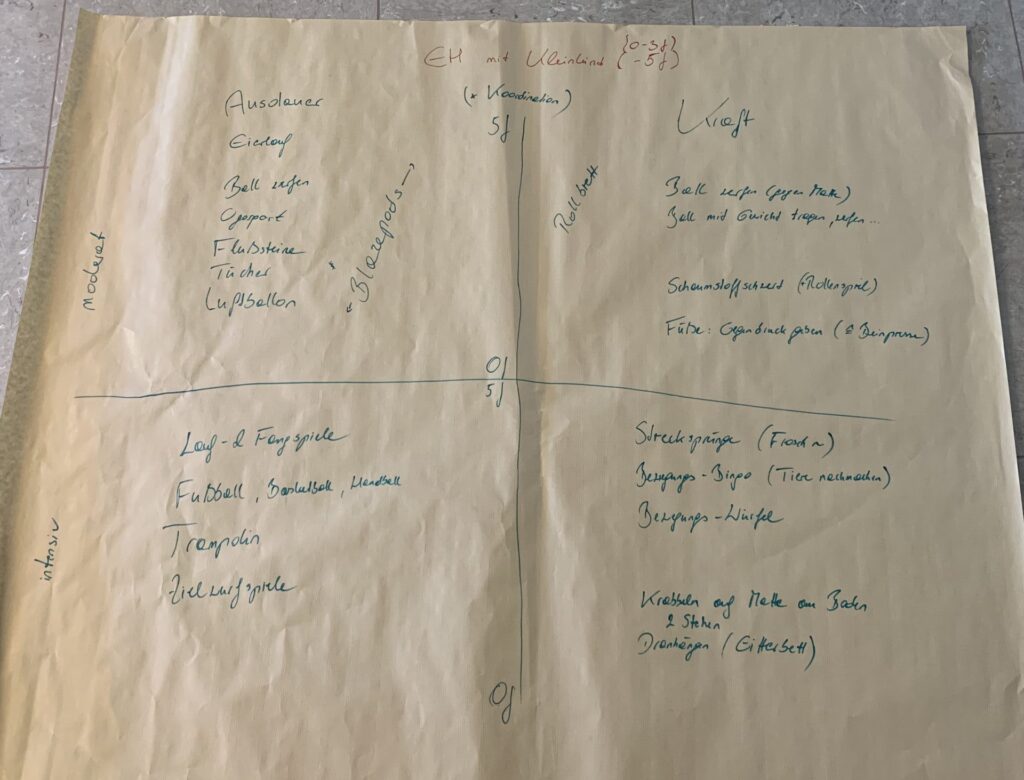 EH mit Kleinkind {0-3J
-5J}
Ausdauer
(+ Koordination)
Kraft
5J
Eierlauf
Ball werfen
Flußsteine
Tücher
Luftballon
← Blazepods →
Rollbrett
Ball werfen (gegen Matte)
Ball mit Gewicht tragen, werfen...
Schaumstoffschwert (+Rollenspiel)
Füße: Gegendruck geben (≙ Beinpresse)
moderat
0J
5J
Lauf- & Fangspiele
Fußball, Basketball, Handball
Trampolin
Zielwurfspiele
intensiv
Strecksprünge (Frosch)
Bewegungs-Bingo (Tiere nachmachen)
Bewegungs-Würfel
Krabbeln auf Matte am Boden
& Stehen
Dranhängen (Gitterbett)
0J